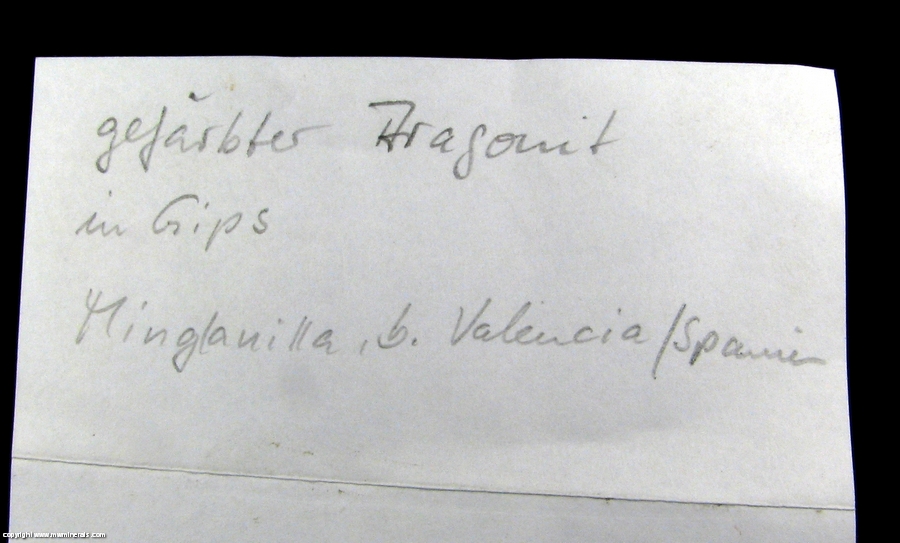 gefärbter Aragonit
in Gips
Minglanilla, b. Valencia/Spanien
copyright www.mwminerals.com